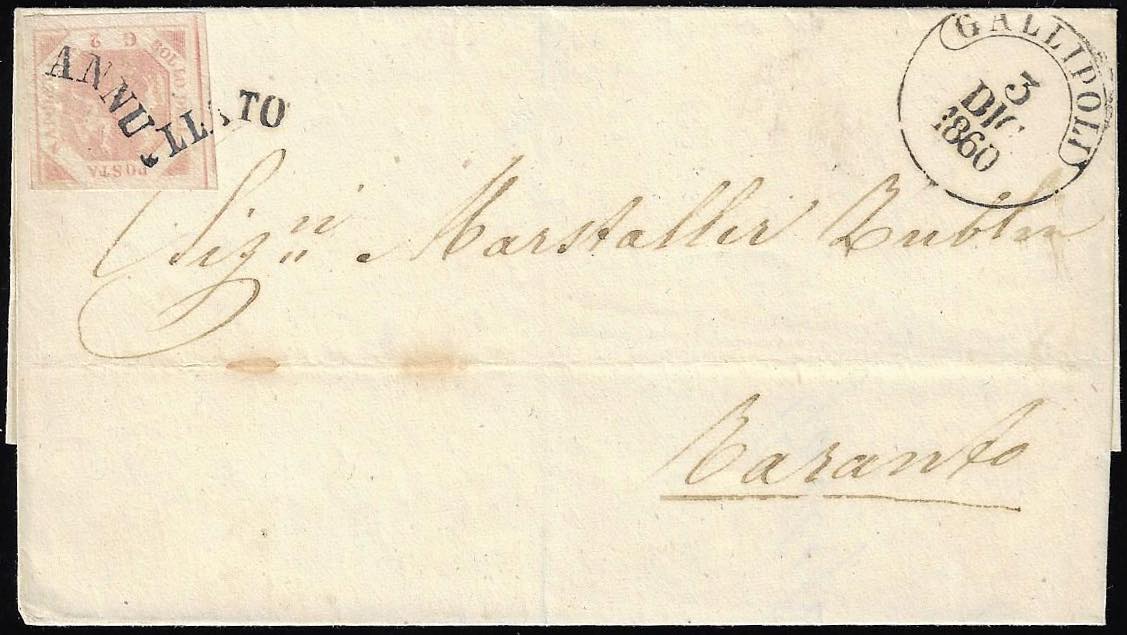 G. 2
BOLLO
POSTA
ANNULLATO
GALLIPOLI
3
DIC
1860
Sigri Marstaller Zublin
Taranto